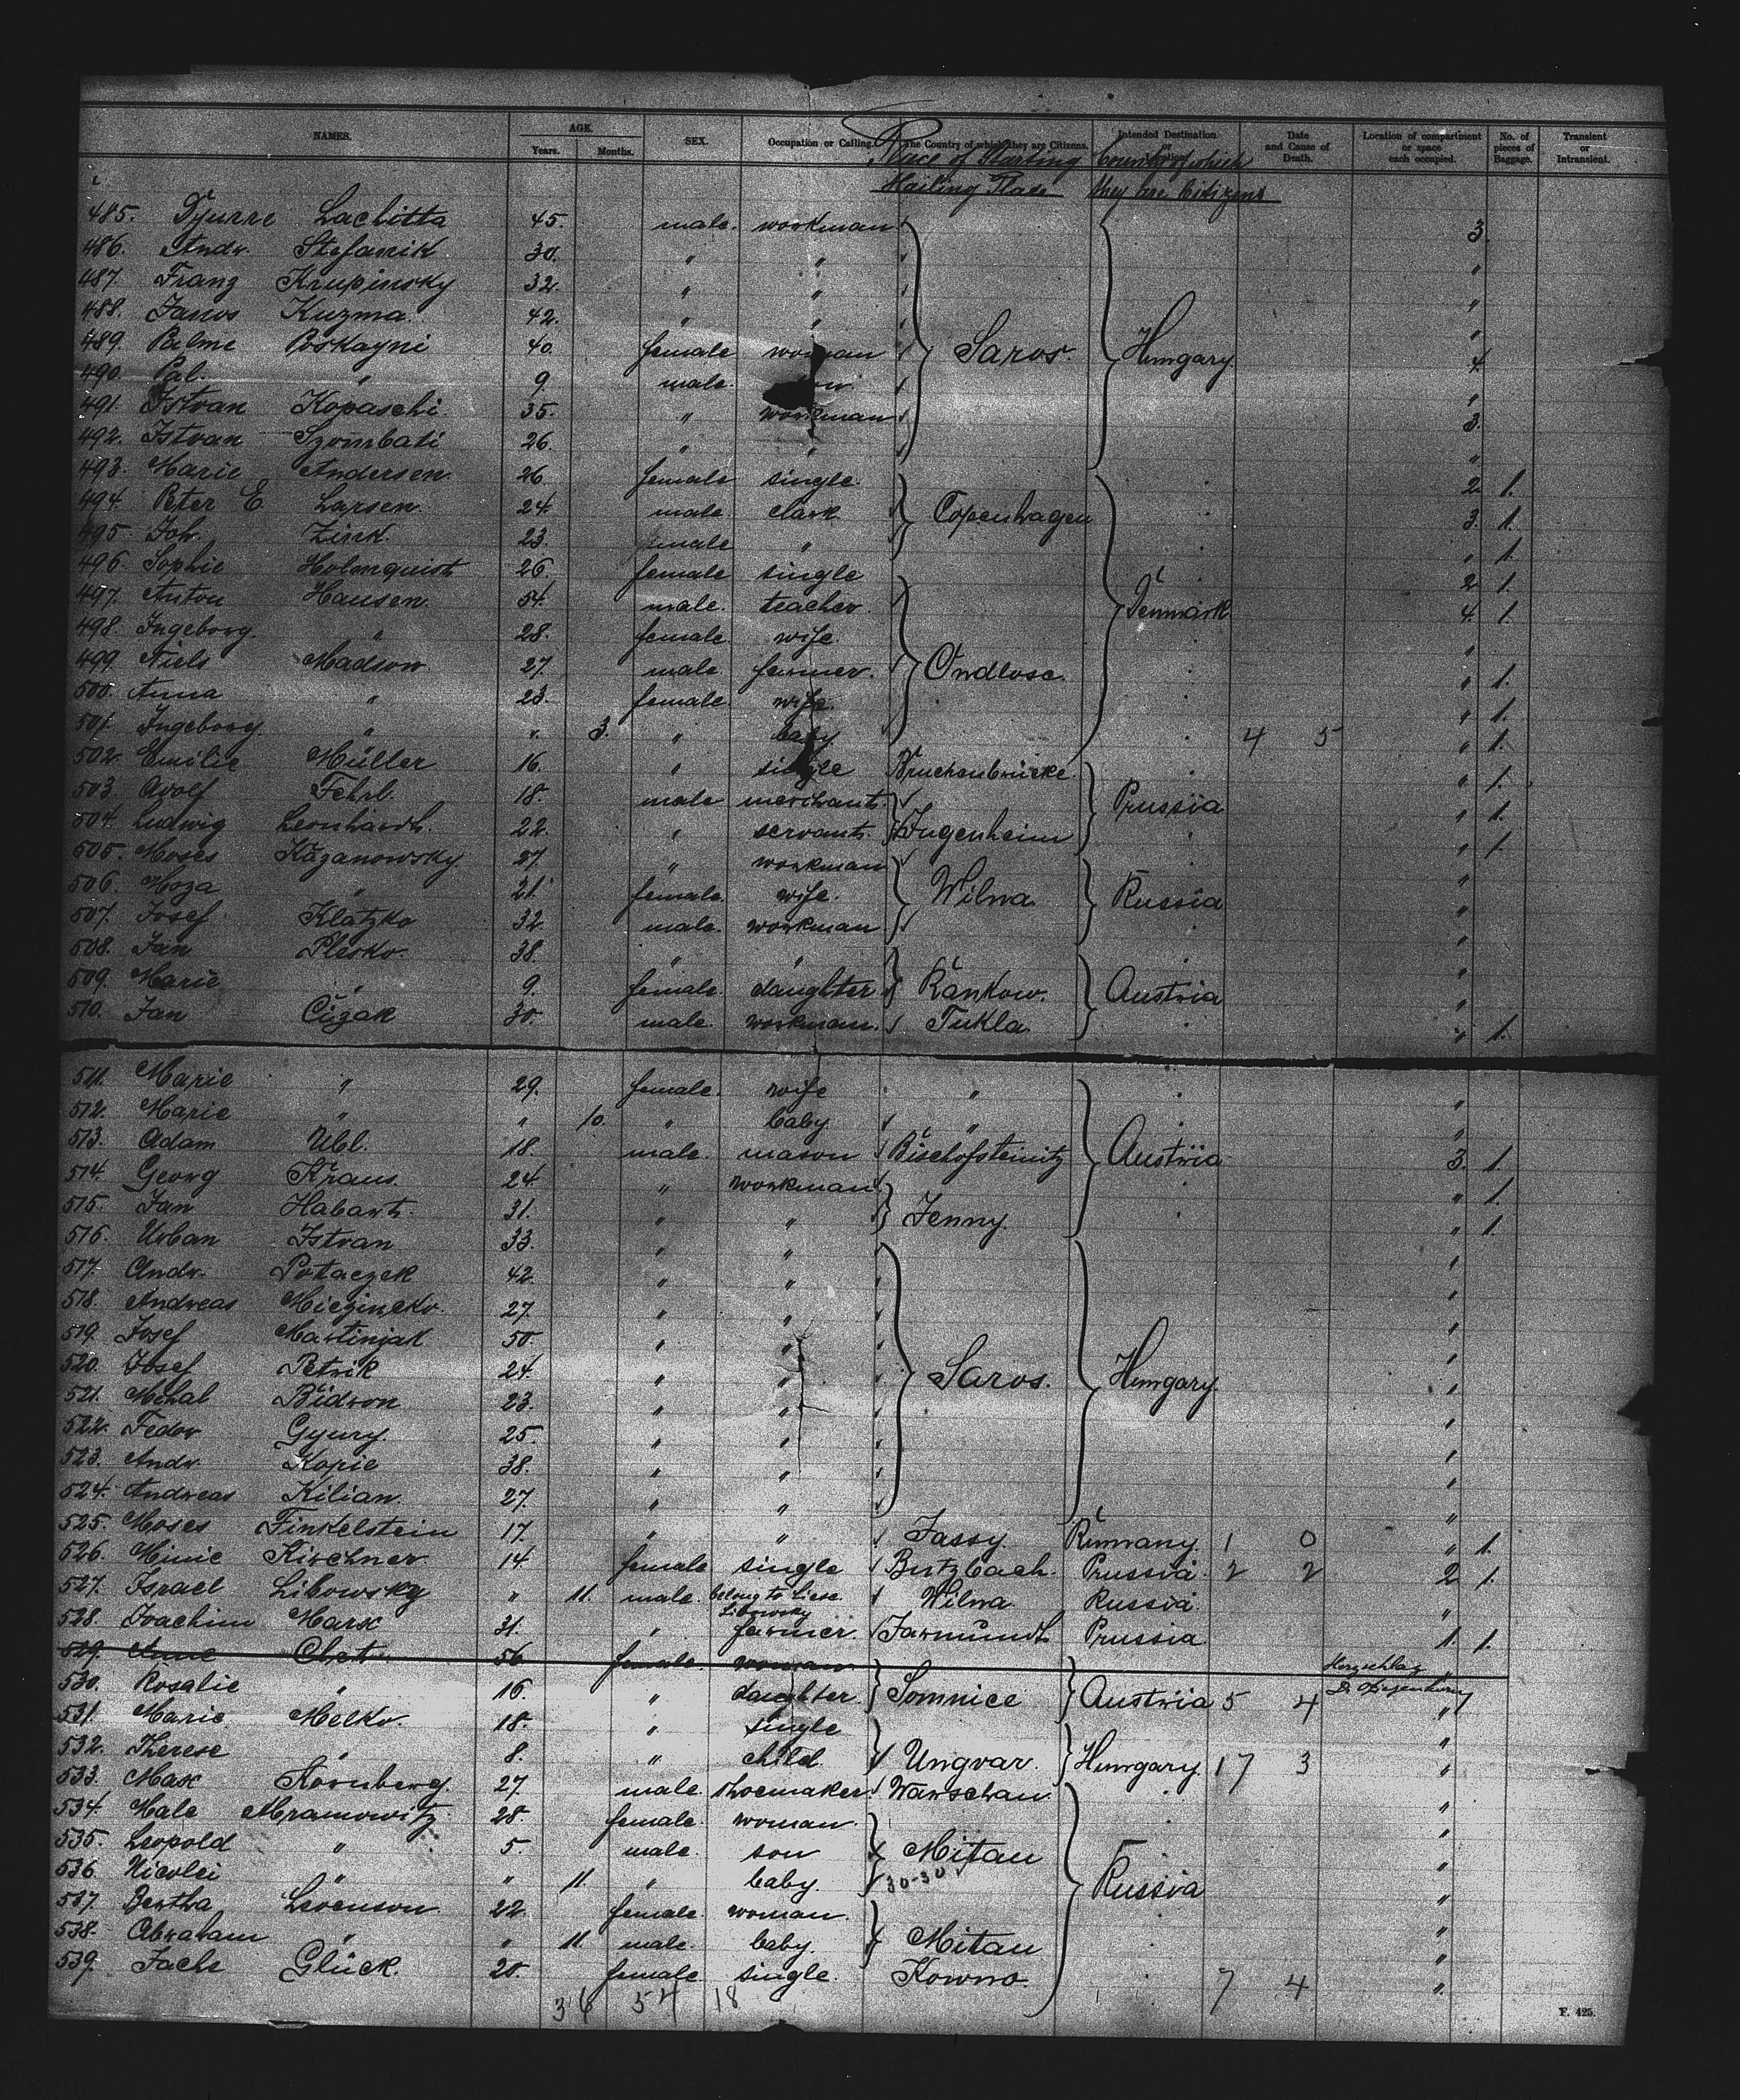 NAMES. AGE. SEX. Occupation or Calling. The Country of which they are Citizens. Intended Destination or Date and Cause of Death. Location of compartment or space each occupied. No. of pieces of Baggage. Transient or Intransient.
Years. Months.
Place of Starting Country of which
Mailing Place they are Citizens
485. Gyurre Lachotta 45. male. workman 3.
486. Andr. Stefanik 30. " " "
487. Franz Krupinsky 32. " " "
488. Janos Kuzma. 42. " " "
489. Palme Poskayni 40. female woman Saros. Hungary. 4.
490. Pal. " 9. male. "
491. Istvan Kopaschi 35. " workman 3.
492. Istvan Szombati 26. " " "
493. Marie Andersen. 26. female single. 2. 1.
494. Peter E. Larsen. 24. male. clark. Copenhagen 3. 1.
495. Joh. Zink. 23. male " " 1.
496. Sophie Holmquist 26. female single 2. 1.
497. Anton Hansen. 54. male. teacher. Denmark 4. 1.
498. Ingeborg. " 28. female. wife. "
499. Niels Madsow. 27. male. farmer. Ondlose. " 1.
500. Anna " 23. female. wife. " 1.
501. Ingeborg. " " 3. " baby 4 5 " 1.
502. Emilie Müller 16. " single Bruchenbrücke. " 1.
503. Adolf Fehrl. 18. male merchant. Prussia " 1.
504. Ludwig Leonhardt. 22. " servant. Jugenheim " 1.
505. Moses Kazanowsky. 27. " workman "
506. " 21. female. wife. Wilna. Russia "
507. Josef Klatzko 32. male. workman "
508. Jan Plesko. 38. " " "
509. Marie " 9. female. daughter Rankow. Austria "
510. Jan Cuzak 30. male. workman. Tukla. " 1.
511. Marie " 29. female. wife " "
512. Marie " " 10. " baby " "
513. Adam Ubl. 18. male. mason Bischofsteinitz Austria 3. 1.
514. Georg Kraus. 24. " workman " 1.
515. Jan Habart. 31. " " Jenny. " 1.
516. Urban Istvan 33. " " "
517. Andr. Potaczek 42. " " "
518. Andreas Miczincko. 27. " " "
519. Josef Martinjak 50. " " "
520. Josef Petrik 24. " " Saros. Hungary. "
521. Mihal Bidron 23. " " "
522. Fedor Gyury. 25. " " "
523. Andr. Kopie 38. " " "
524. Andreas Kilian. 27. " " "
525. Moses Finkelstein 17. " " Jassy. Rumany. 1 0 " 1.
526. Minie Kirchner 14. female single Butzbach. Prussia. 2 2 2. 1.
527. Israel Libowsky " 11. male. belong to Liese Libowsky Wilna Russia. "
528. Joachim Marx 31. " farmer. Prussia 1. 1.
529. Anne 56. female. woman. Herzschlag "
530. Rosalie " 16. " daughter. Somnice Austria 5 4 "
531. Marie Melko. 18. " single "
532. Therese " 8. " child. Ungvar. Hungary. 17 3 "
533. Max Kornberg. 27. male. shoemaker. Warschau. "
534. Male Mramowitz 28. female. woman. "
535. Leopold " 5. male. son Mitau "
536. Nicolei " " 11. " baby. 30-30 Russia "
537. Bertha Levenson. 22. female. woman. "
538. Abraham " " 11. male. baby. Mitau "
539. Jache Glück. 20. female. single. Kowno 7 4 "
36 54 18
F. 425.